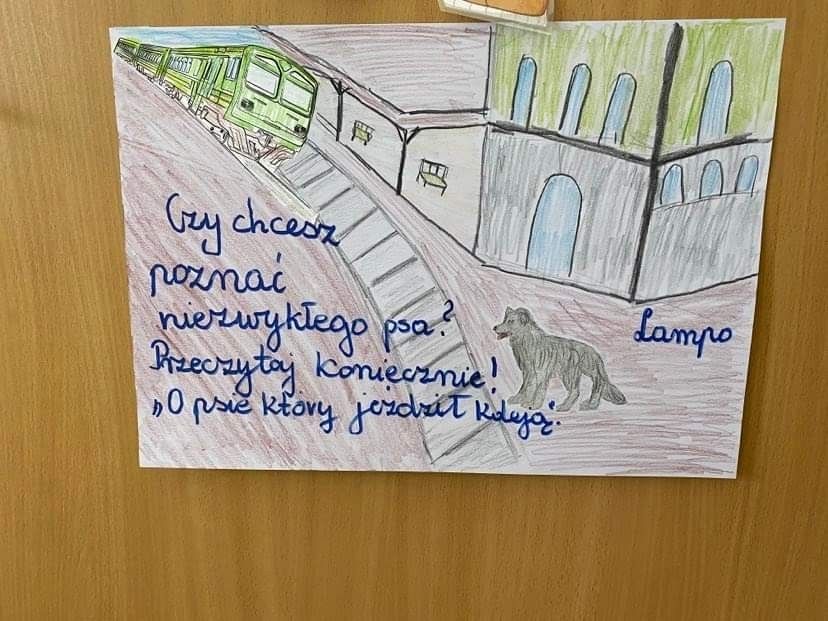 Czy chcesz
poznać
niezwykłego psa?
Przeczytaj koniecznie!
„O psie który jeździł koleją".
Lampo